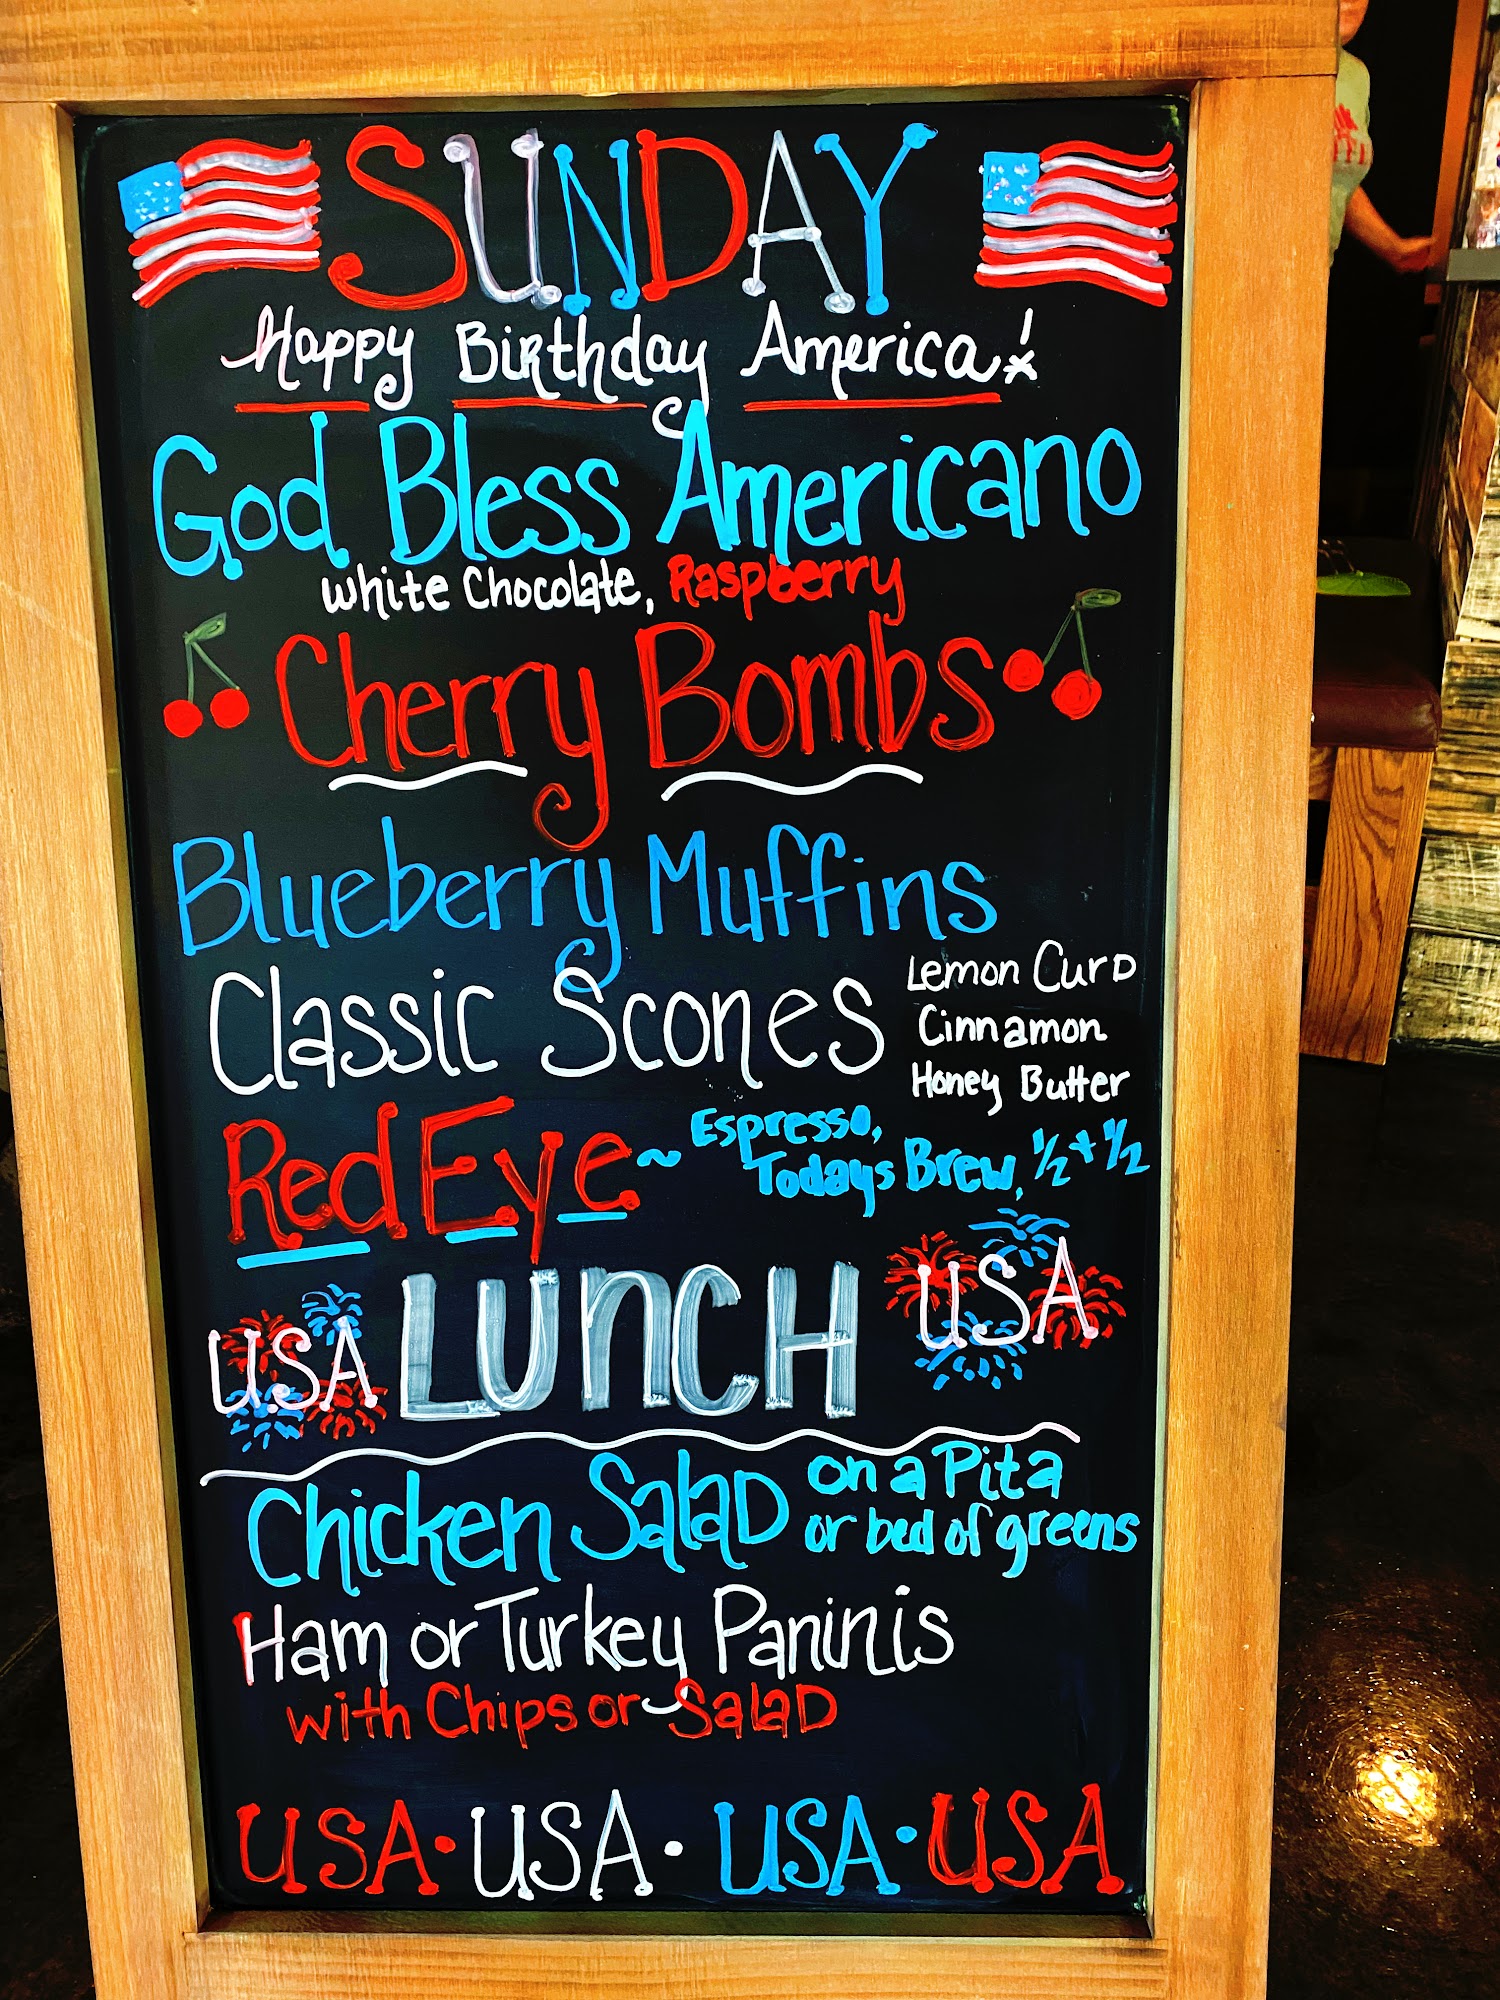 SUNDAY
Happy Birthday America!
God Bless Americano
White Chocolate, Raspberry
Cherry Bombs
Blueberry Muffins
Classic Scones
Lemon Curd
Cinnamon
Honey Butter
Red Eye ~ Espresso,
Todays Brew, 1/2 + 1/2
USA LUNCH USA
Chicken Salad on a Pita
or bed of greens
Ham or Turkey Paninis
with Chips or Salad
USA · USA · USA · USA